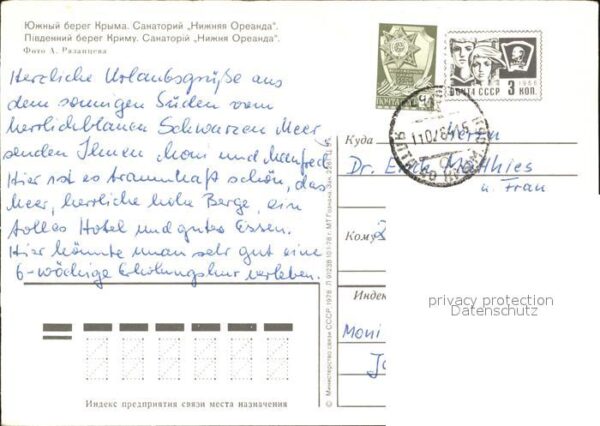 Южный берег Крыма. Санаторий „Нижняя Ореанда".
Південний берег Криму. Санаторій „Нижня Ореанда".
Фото А. Рязанцева
Herzliche Urlaubsgrüße aus
dem sonnigen Süden vom
herrlichblauen Schwarzen Meer
senden Ihnen Moni und Manfred.
Hier ist es traumhaft schön, das
Meer, herrliche hohe Berge, ein
tolles Hotel und gutes Essen.
Hier könnte man sehr gut eine
6-wöchige Erholungskur verleben.
ПОЧТА СССР 3 КОП.
1966
Куда
Herrn
Dr. Matthies
u. Frau
Кому
Индекс
privacy protection
Datenschutz
Moni
Индекс предприятия связи места назначения
© Министерство связи СССР, 1978